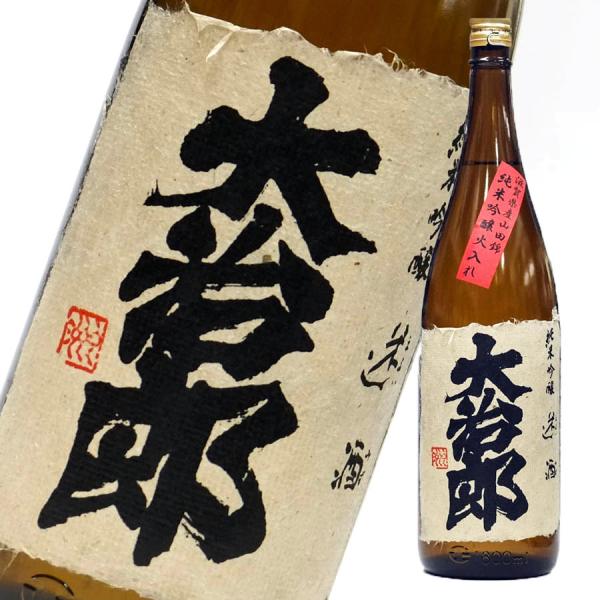 大治郎
純米吟醸
迷酒
滋賀県産山田錦
純米吟醸火入れ
純米吟醸 迷酒
大治郎
1800ml